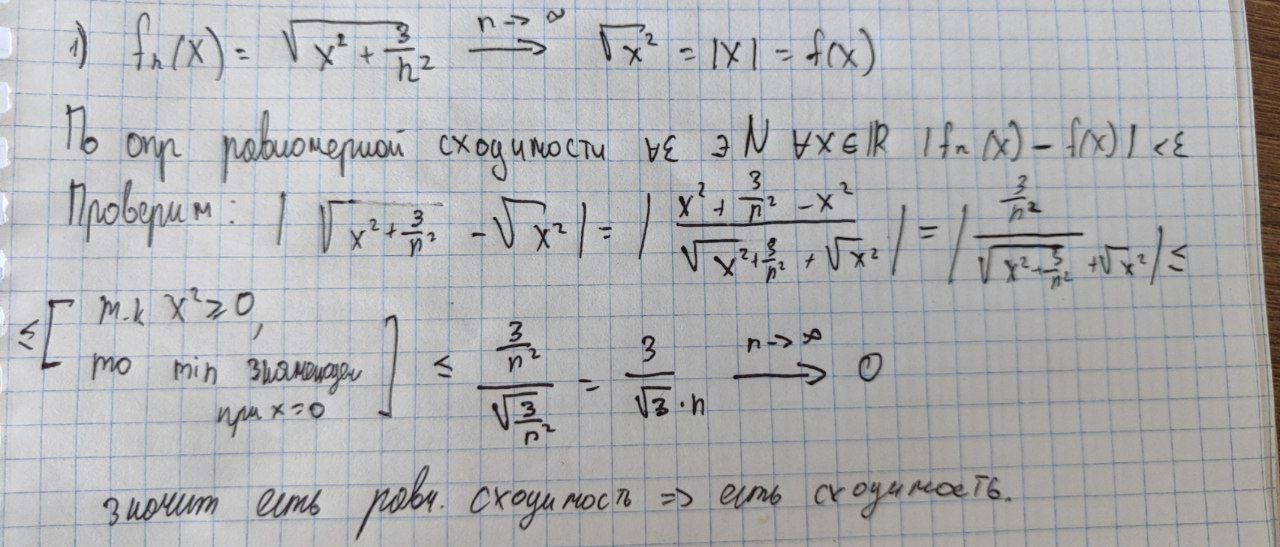 1) fₙ(x) = √(x² + 3/n²) n→∞ ⟶ √x² = |x| = f(x)
По опр равномерной сходимости ∀ε ∃N ∀x∈ℝ |fₙ(x) − f(x)| < ε
Проверим: |√(x² + 3/n²) − √x²| = |(x² + 3/n² − x²)/(√(x² + 3/n²) + √x²)| = |(3/n²)/(√(x² + 3/n²) + √x²)| ≤
≤ [т.к x² ≥ 0, то min знаменател при x = 0] ≤ (3/n²)/√(3/n²) = 3/(√3·n) n→∞ ⟶ 0
значит есть равн. сходимость => есть сходимость.